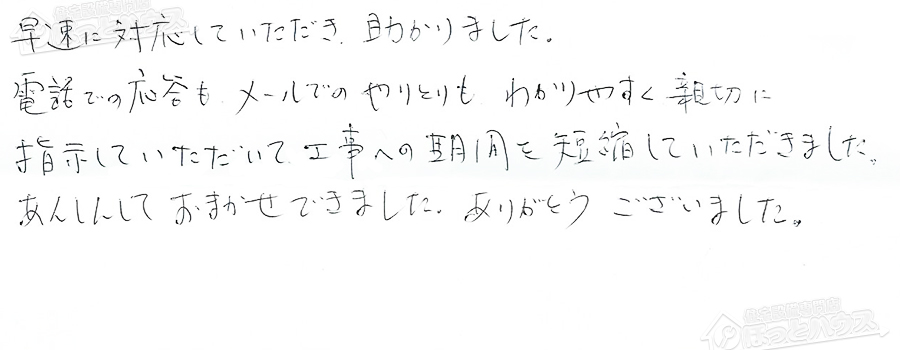 早速に対応していただき、助かりました。
電話での応答も、メールでのやりとりも、わかりやすく親切に
指示していただいて、工事への期間を短縮していただきました。
あんしんして おまかせできました。ありがとう ございました。
住宅設備専門店
ほっとハウス